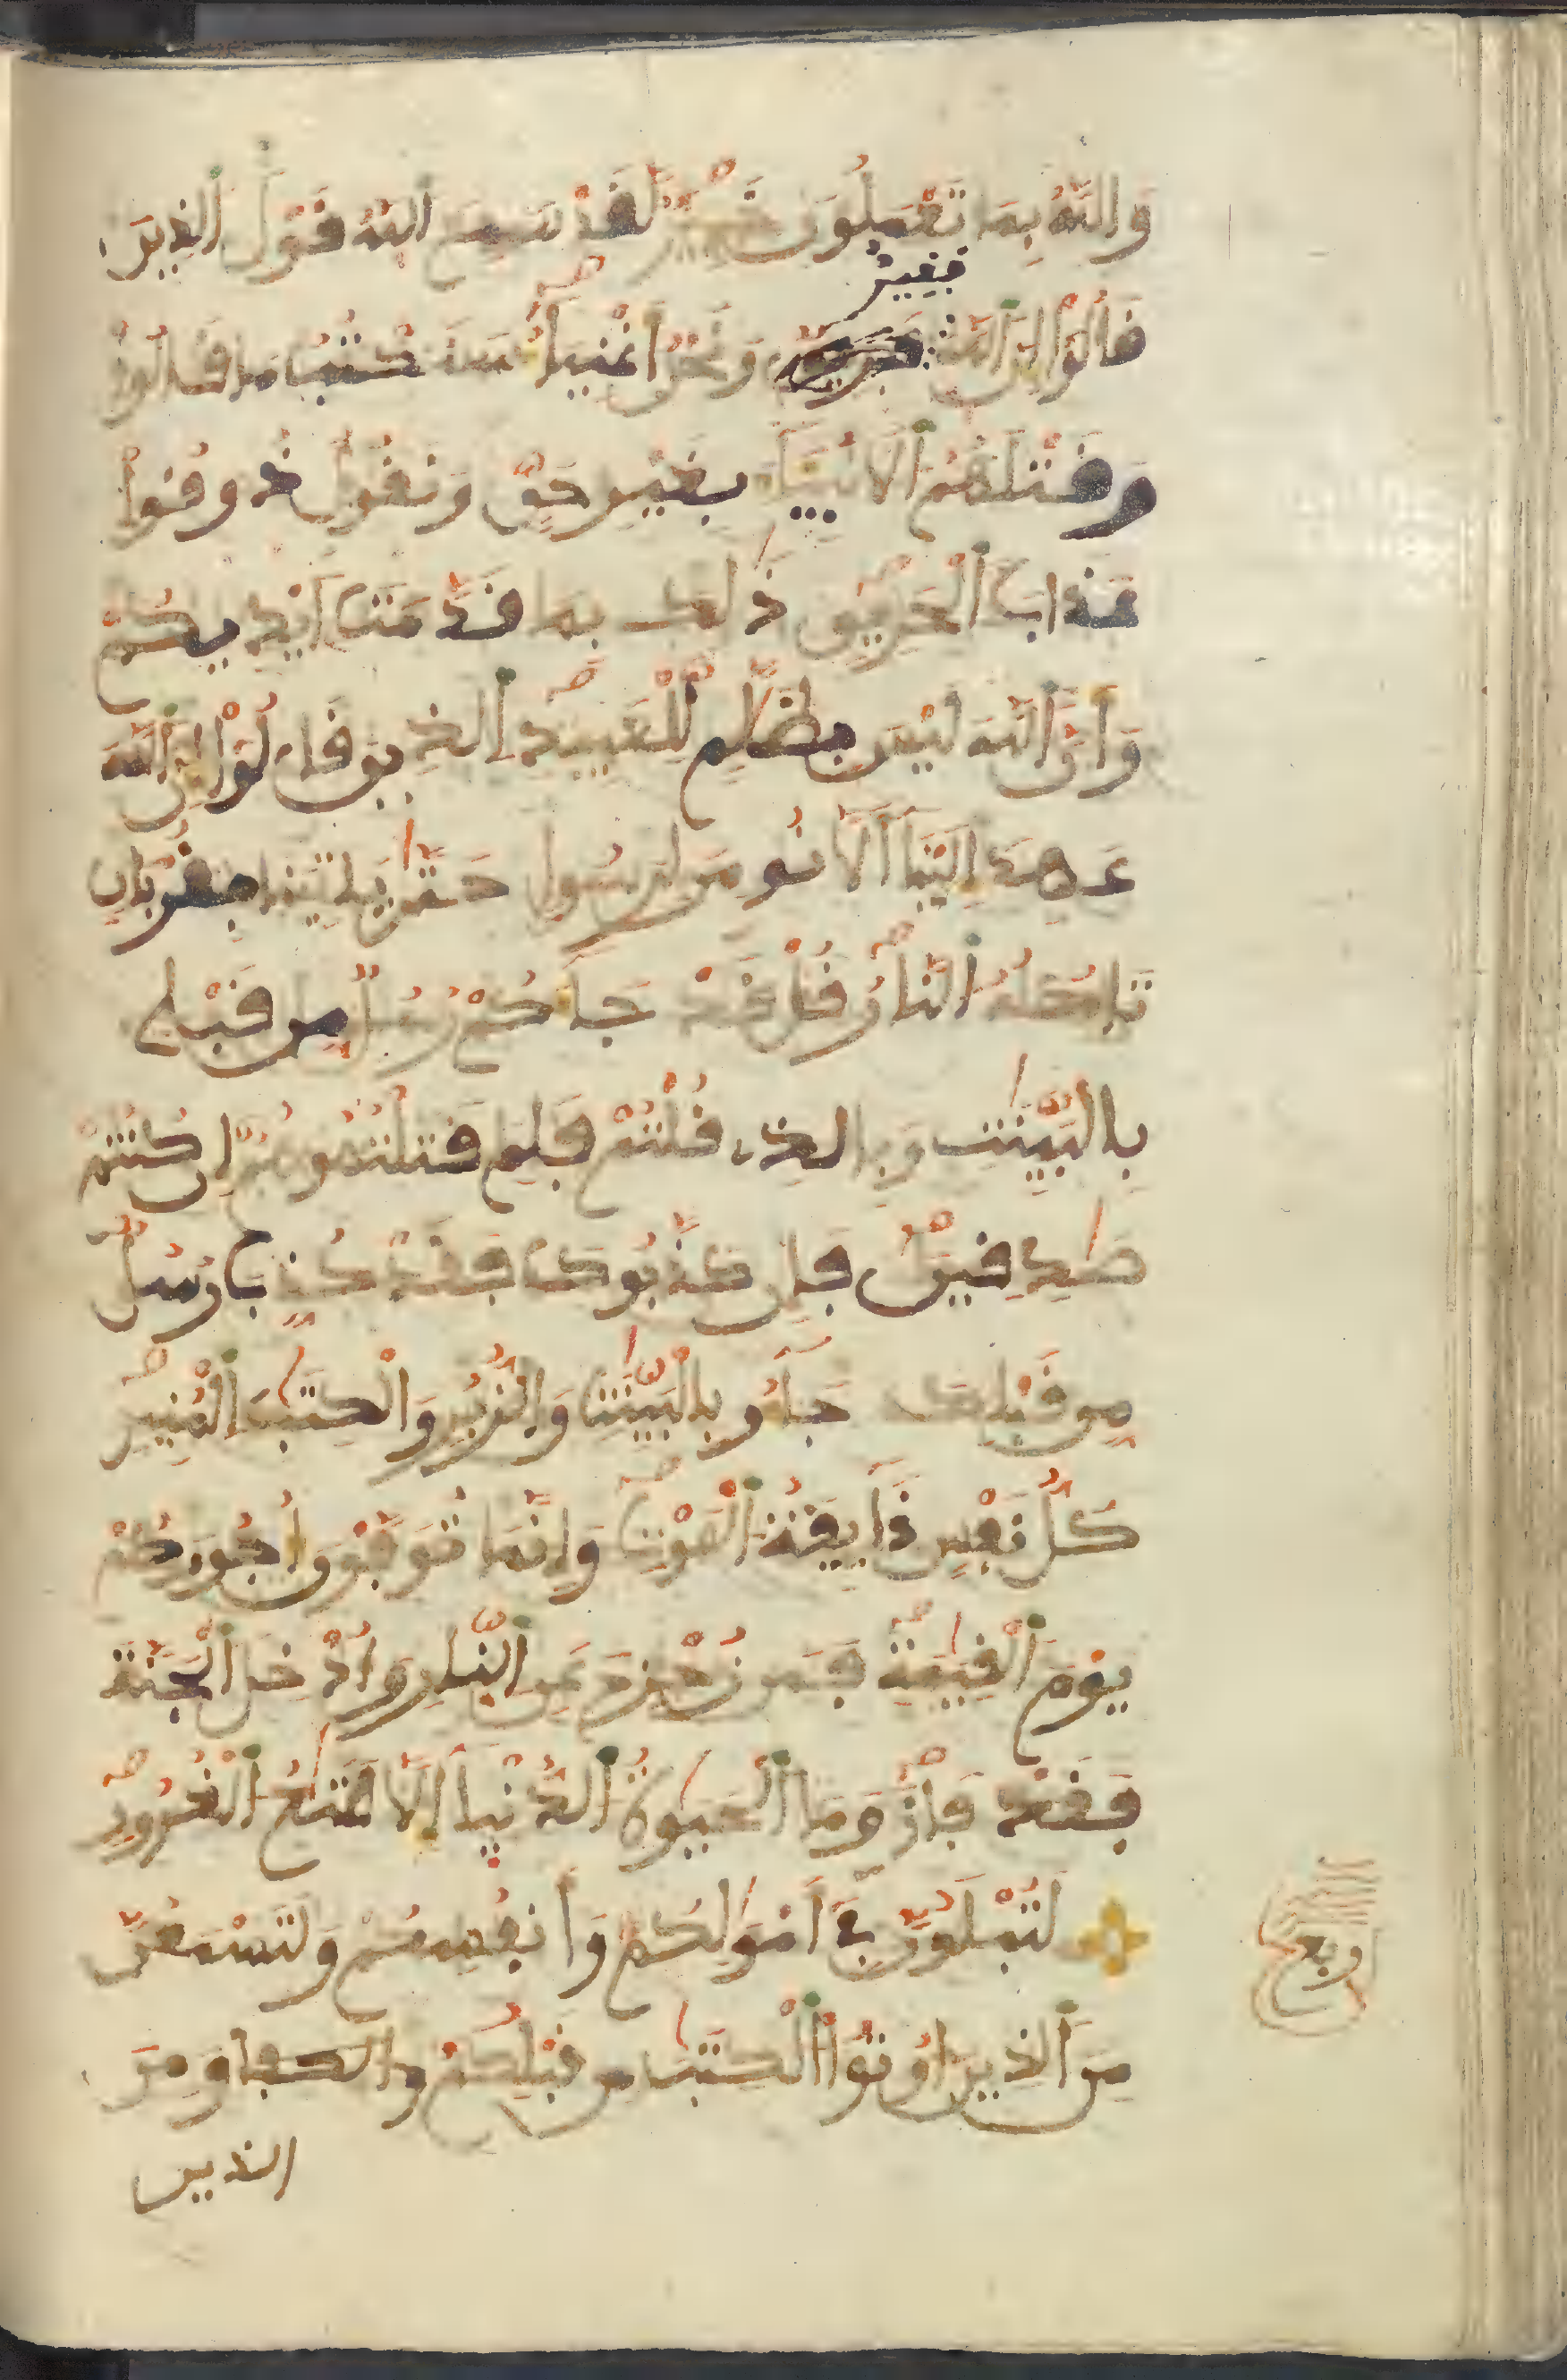 وَاللَّهُ بِمَا تَعْمَلُونَ خَبِيرٌ لَّقَدْ سَمِعَ اَللَّهُ قَوْلَ اَلذِينَ
فقير
قَالُوٓاْ إِنَّ اَللَّهَ وَنَحْنُ أَغْنِيَآءُ سَنَكْتُبُ مَا قَالُواْ
وَقَتْلَهُمُ اَلَانۢبِيَآءَ بِغَيْرِ حَقٍّ وَنَقُولُ ذُوقُواْ
عَذَابَ اَلْحَرِيقِ ذَٰلِكَ بِمَا قَدَّمَتَ اَيْدِيكُمْ
وَأَنَّ اَللَّهَ لَيْسَ بِظَلَّٰمٍ لِّلْعَبِيدِ اَلذِينَ قَالُوٓاْ إِنَّ اَللَّهَ
عَهِدَ إِلَيْنَآ أَلَّا نُومِنَ لِرَسُولٍ حَتَّىٰ يَاتِيَنَا بِقُرْبَانٍ
تَاكُلُهُ اَلنَّارُ قُلْ قَدْ جَآءَكُمْ رُسُلٌ مِّن قَبْلِے
بِالْبَيِّنَٰتِ وَبِالذِے قُلْتُمْ فَلِمَ قَتَلْتُمُوهُمُ إِن كُنتُمْ
صَٰدِقِينَ فَإِن كَذَّبُوكَ فَقَدْ كُذِّبَ رُسُلٌ
مِّن قَبْلِكَ جَآءُو بِالْبَيِّنَٰتِ وَالزُّبُرِ وَالْكِتَٰبِ اِلْمُنِيرِ
كُلُّ نَفْسٍ ذَآئِقَةُ اُلْمَوْتِ وَإِنَّمَا تُوَفَّوْنَ أُجُورَكُمْ
يَوْمَ اَلْقِيَٰمَةِ فَمَن زُحْزِحَ عَنِ اِلنَّارِ وَأُدْخِلَ اَلْجَنَّةَ
فَقَدْ فَازَ وَمَا اَلْحَيَوٰةُ اُلدُّنْيَآ إِلَّا مَتَٰعُ اُلْغُرُورِ
لَتُبْلَوُنَّ فِےٓ أَمْوَٰلِكُمْ وَأَنفُسِكُمْ وَلَتَسْمَعُنَّ
مِنَ اَلذِينَ أُوتُواْ اُلْكِتَٰبَ مِن قَبْلِكُمْ وَمِنَ
الذين
ربع